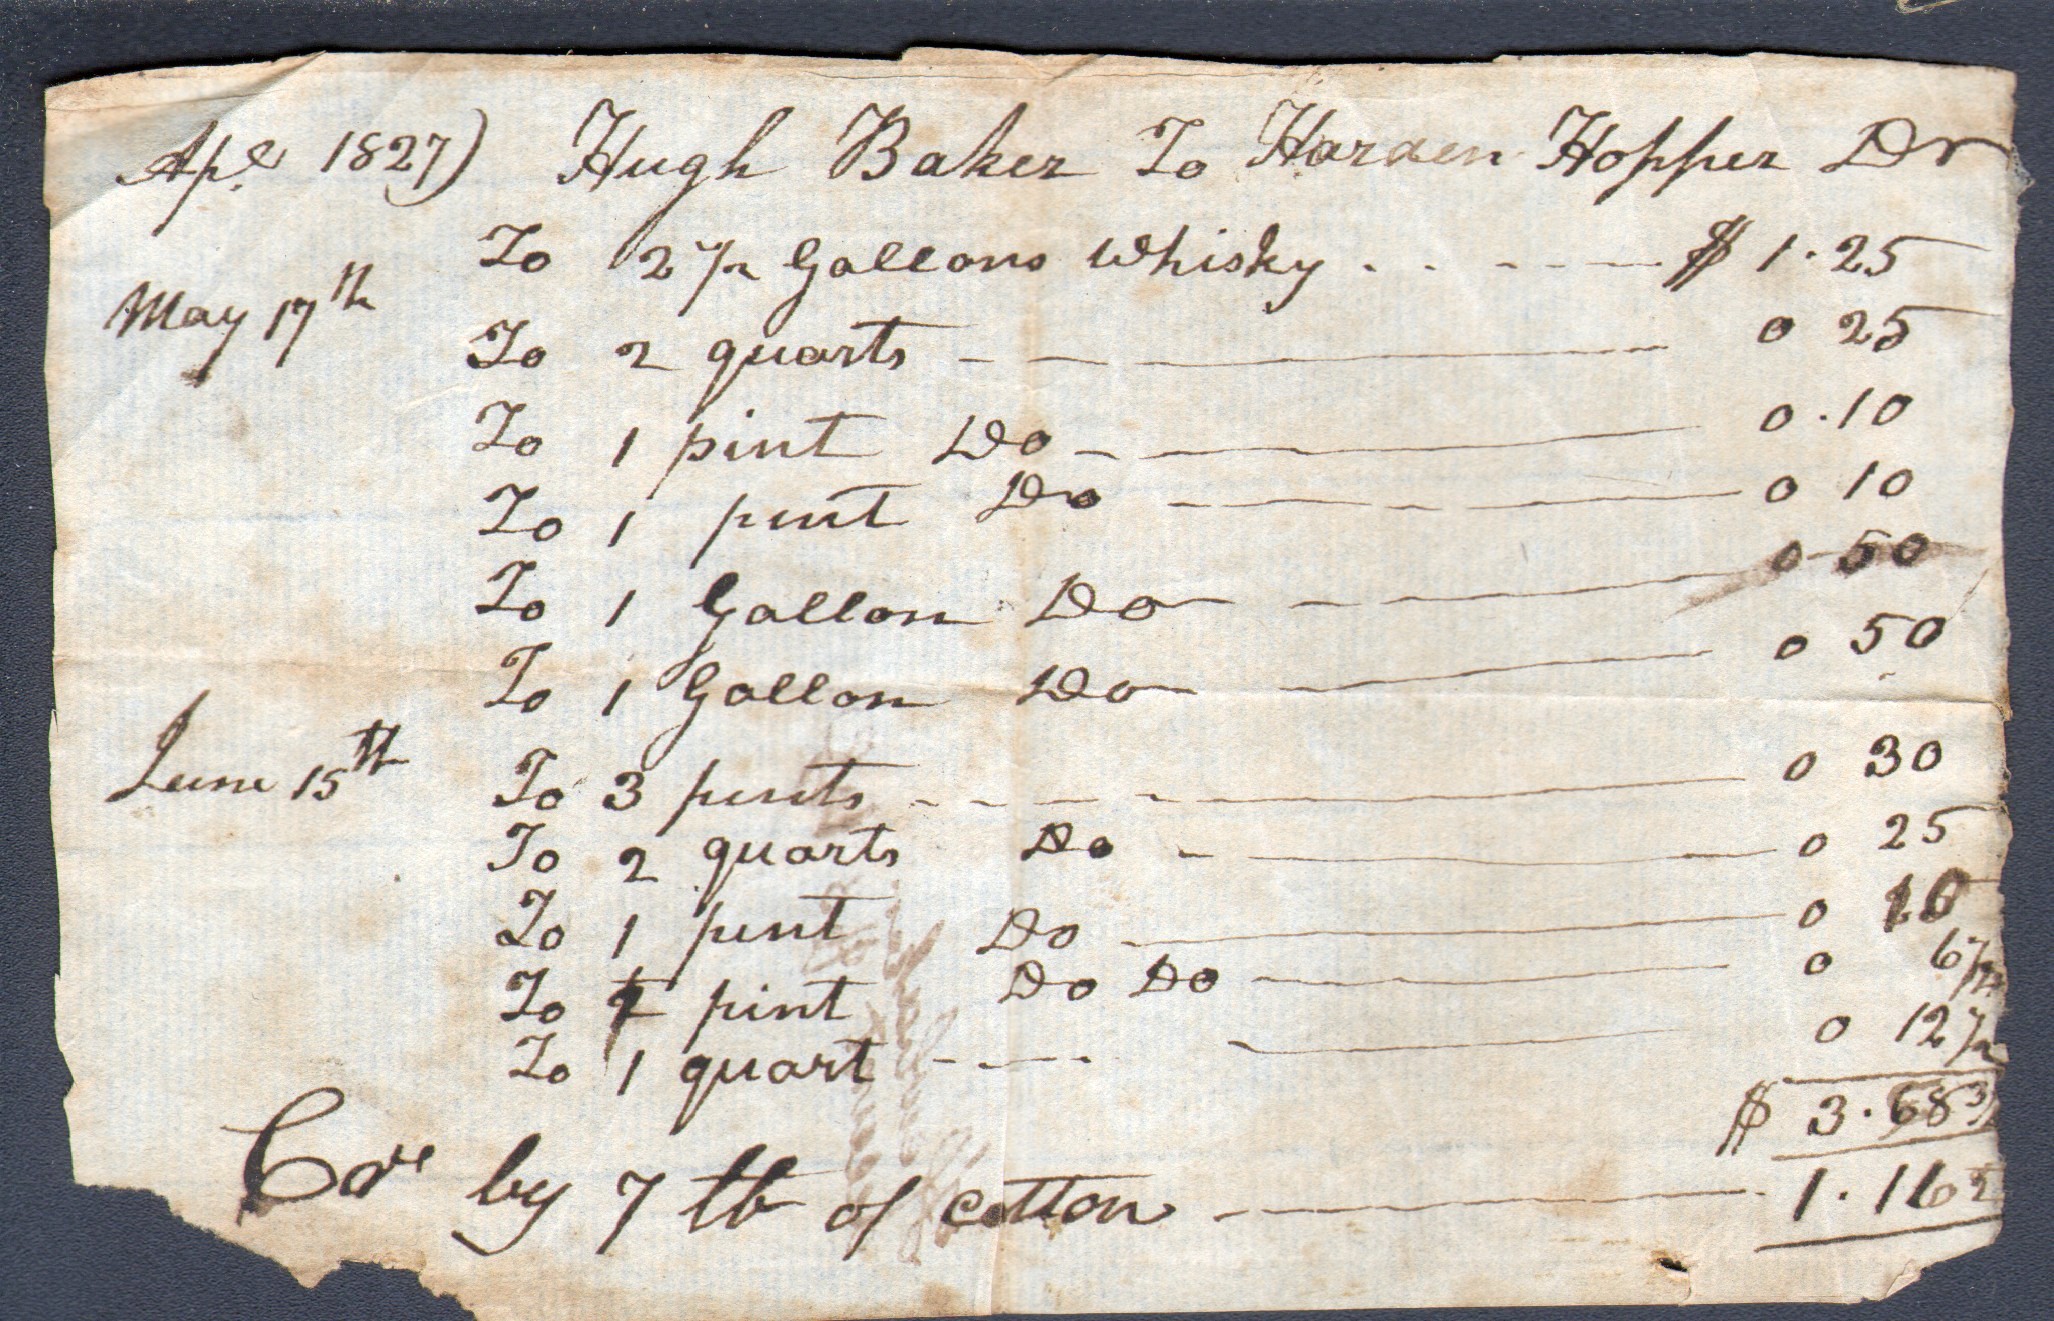 Apl 1827) Hugh Baker To Harden Hopper Dr
To 2 1/2 Gallons Whisky $ 1.25
May 17th To 2 quarts 0 25
To 1 pint Do 0.10
To 1 pint Do 0 10
To 1 Gallon Do 0 50
To 1 Gallon Do 0 50
June 15th To 3 pints 0 30
To 2 quarts Do 0 25
To 1 pint Do 0 10
To pint Do Do 0 6 1/4
To 1 quart 0 12 1/2
$ 3.
by 7 lb of cotton 1.16